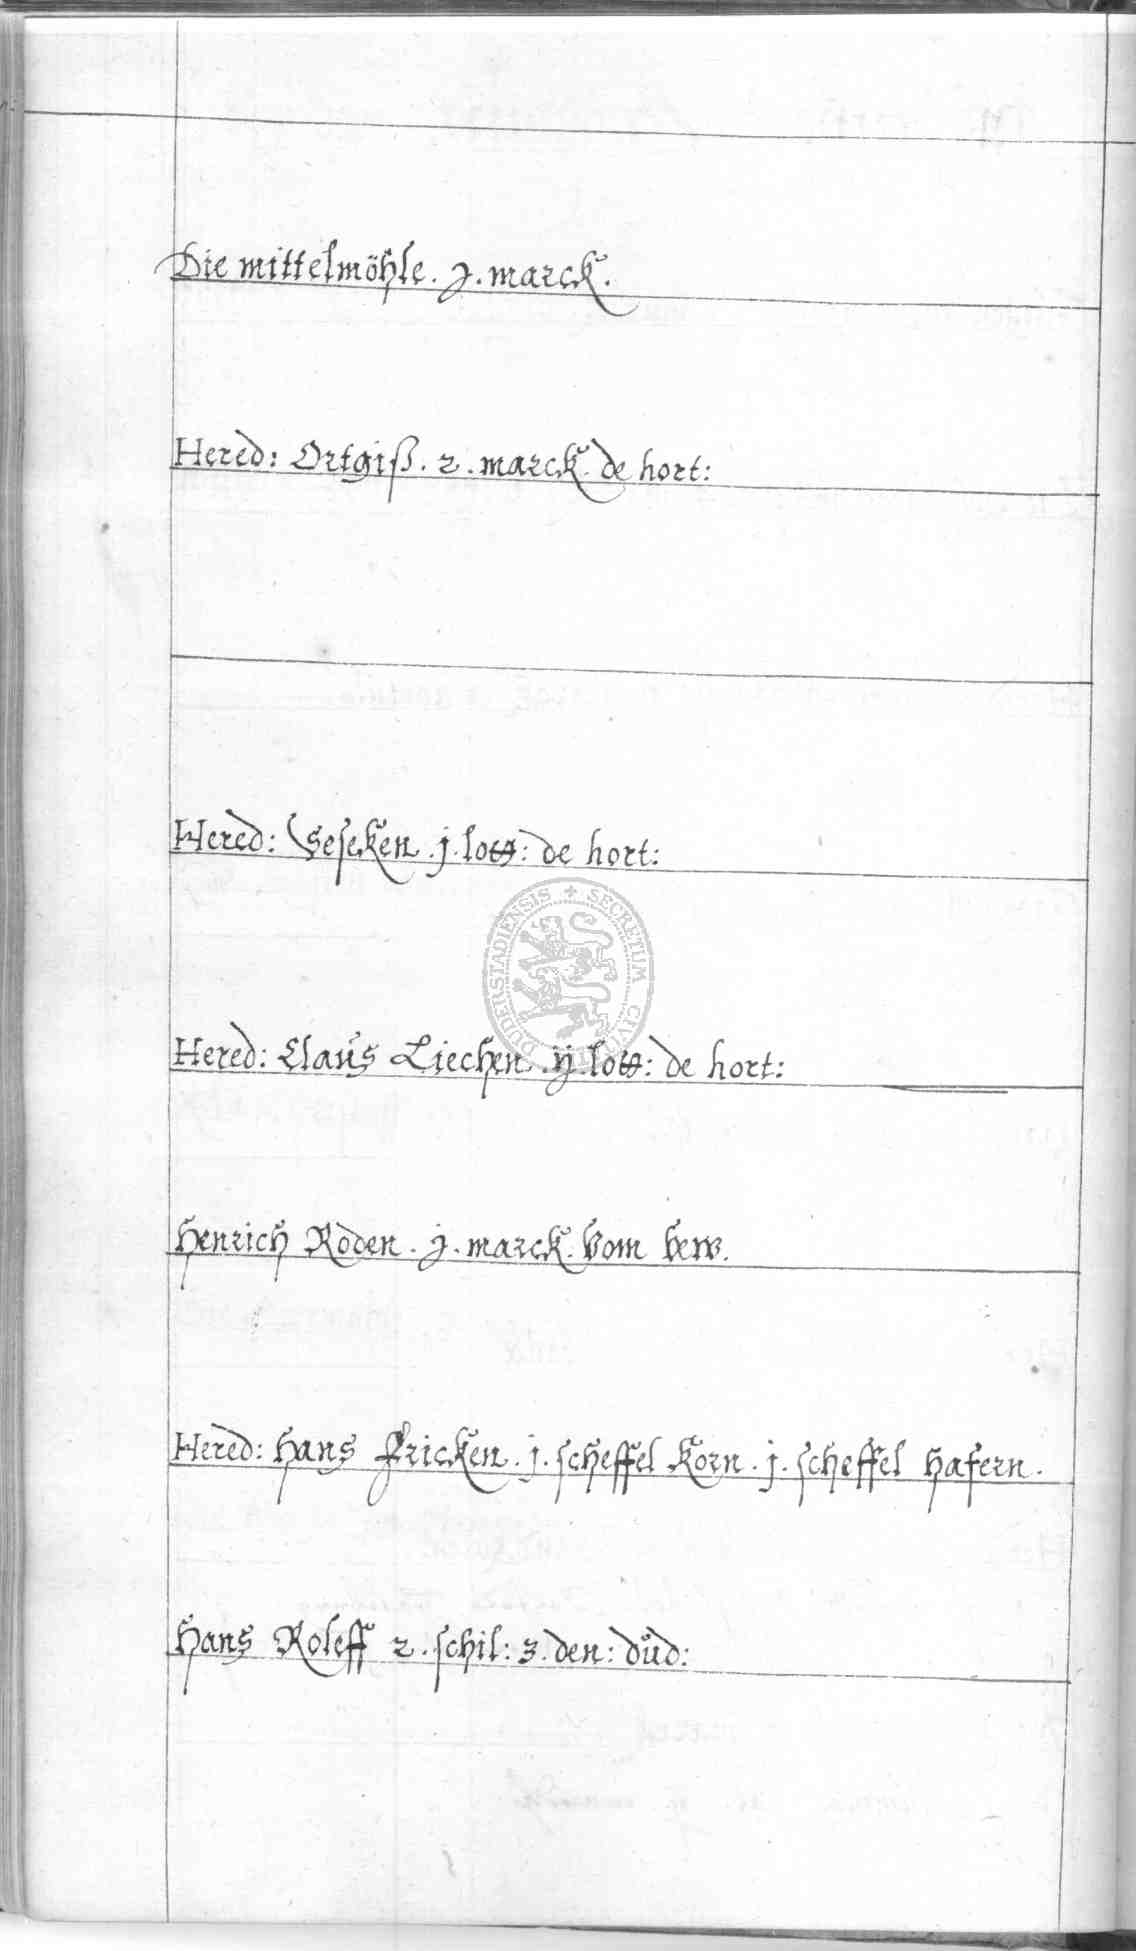 Die mittelmöhle. j. marck.
Hered: Ortgiß. 2. marck. de hort:
Hered: Geseken. j. lott: de hort:
SECRETUM CIVIT DUDERSTADIENSIS
Hered: Claus Liechen. ij. lott: de hort:
Henrich Roden. j. marck. vom
Hered: Hans Fricken. j. scheffel Korn. j. scheffel hafern.
Hans Roleff 2. schil: 3. den: dud: